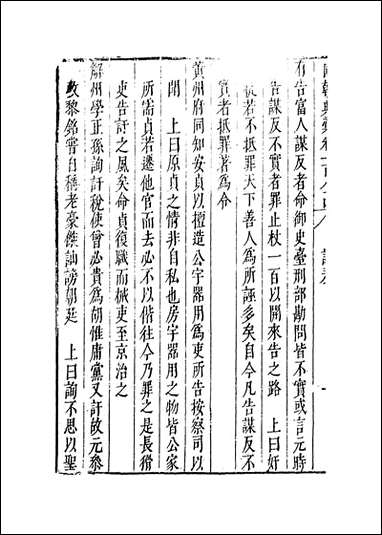 國朝典彙卷一百八十
有告富人謀反者命御史臺刑部勘問皆不實或言元時
告謀反不實者罪止杖一百以開來告之路　上曰奸
人若不抵罪天下善人爲所誣多矣自今凡告謀反不
實者抵罪著爲令
黃州府同知安貞以擅造公宇器用爲吏所告按察司以
聞　上曰原貞之情非自私也房宇器用之物皆公家
所需貞若遷他官而去必不以偕往今乃罪之是長猾
吏告訐之風矣命貞復職而械吏至京治之
解州學正孫詢訐稅使曾必貴爲胡惟庸黨又訐故元參
政黎銘嘗自稱老豪傑訕謗朝廷　上曰詢不思以聖